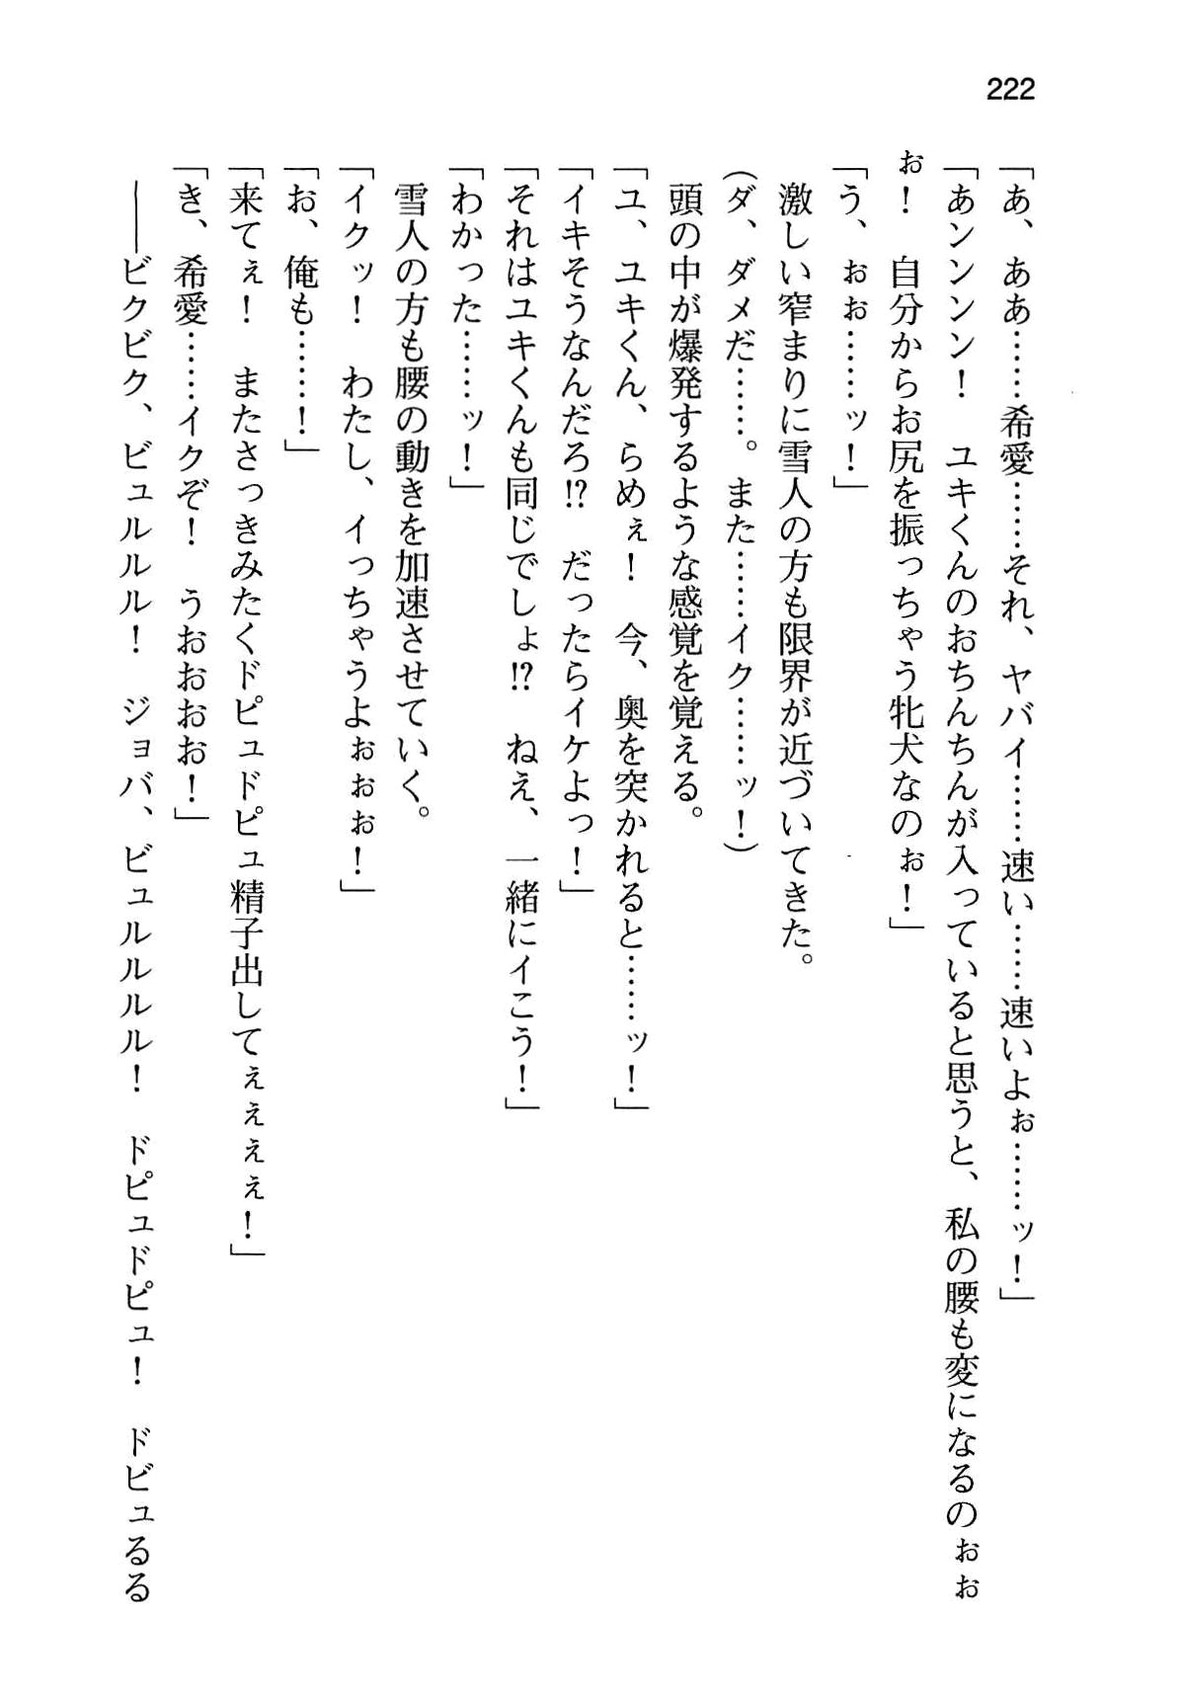 222
「あ、ああ……希愛……それ、ヤバイ……速い……速いよぉ……ッ！」
「あンンン！　ユキくんのおちんちんが入っていると思うと、私の腰も変になるのぉぉ
ぉ！　自分からお尻を振っちゃう牝犬なのぉ！」
「う、ぉぉ……ッ！」
　激しい窄まりに雪人の方も限界が近づいてきた。
（ダ、ダメだ……。また……イク……ッ！）
　頭の中が爆発するような感覚を覚える。
「ユ、ユキくん、らめぇ！　今、奥を突かれると……ッ！」
「イキそうなんだろ!?　だったらイケよっ！」
「それはユキくんも同じでしょ!?　ねえ、一緒にイこう！」
「わかった……ッ！」
　雪人の方も腰の動きを加速させていく。
「イクッ！　わたし、イっちゃうよぉぉぉ！」
「お、俺も……！」
「来てぇ！　またさっきみたくドピュドピュ精子出してぇぇぇぇ！」
「き、希愛……イクぞ！　うおおおお！」
　――ビクビク、ビュルルル！　ジョバ、ビュルルルル！　ドピュドピュ！　ドビュるる